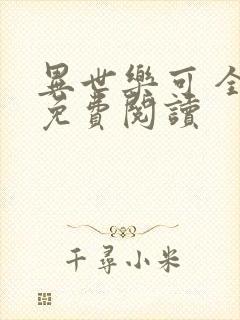 異世樂可 全
免費閱讀
千尋小米